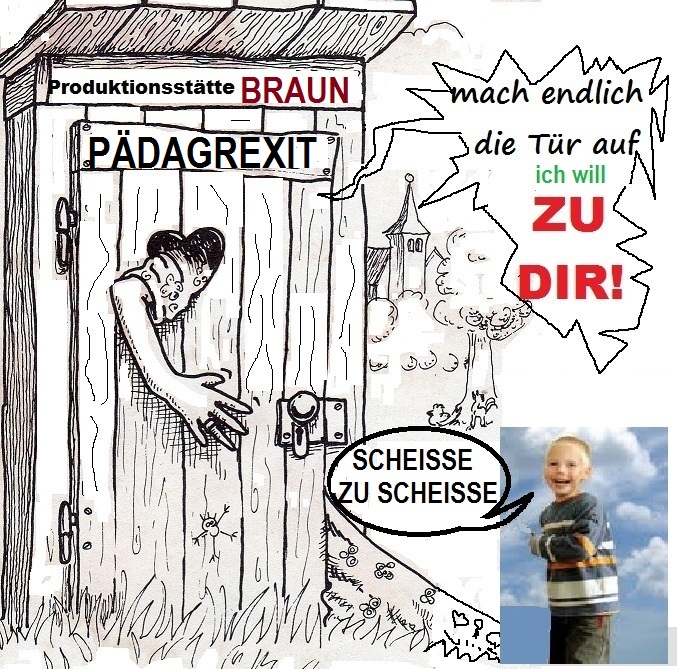 Produktionsstätte BRAUN
PÄDAGREXIT
mach endlich
die Tür auf
ich will
ZU
DIR!
SCHEISSE
ZU SCHEISSE